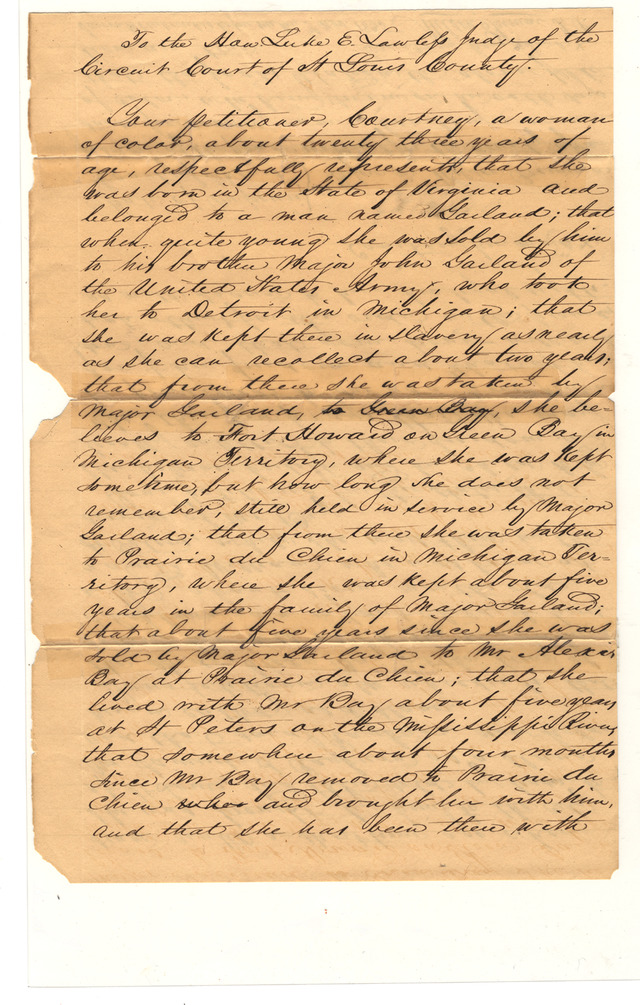 To the Hon Luke E. Lawless Judge of the
Circuit Court of St Louis County.
Your petitioner, Courtney, a woman
of color, about twenty three years of
age, respectfully represents, that she
was born in the State of Virginia and
belonged to a man named Garland; that
when quite young she was sold by him
to his brother Major John Garland of
the United States Army, who took
her to Detroit in Michigan; that
she was kept there in slavery as nearly
as she can recollect about two years;
that from there she was taken by
Major Garland, to Green Bay, she be=
lieves to Fort Howard on Green Bay in
Michigan Territory, where she was kept
sometime, but how long she does not
remember, still held in service by Major
Garland; that from there she was taken
to Prairie du Chien in Michigan Ter=
ritory, where she was kept about five
years in the family of Major Garland;
that about five years since she was
sold by Major Garland to Mr Alexr
Bay at Prairie du Chien; that she
lived with Mr Bay about five years
at St Peters on the Mississippi River,
that somewhere about four months
since Mr Bay removed to Prairie du
Chien and brought her with him,
and that she has been there with